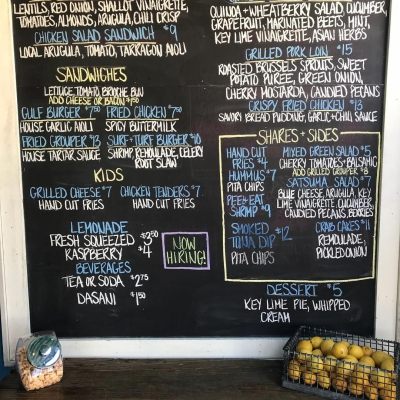 LENTILS, RED ONION, SHALLOT VINAIGRETTE,
TOMATOES, ALMONDS, ARUGULA, CHILI CRISP
CHICKEN SALAD SANDWICH $9
LOCAL ARUGULA, TOMATO, TARRAGON AIOLI
SANDWICHES
LETTUCE, TOMATO, BRIOCHE BUN
ADD CHEESE OR BACON $1.50
GULF BURGER $7.50 FRIED CHICKEN $7.50
HOUSE GARLIC AIOLI SPICY BUTTERMILK
FRIED GROUPER $13 SURF+TURF BURGER $10
HOUSE TARTAR SAUCE SHRIMP, REMOULADE, CELERY
ROOT SLAW
KIDS
GRILLED CHEESE $7 CHICKEN TENDERS $7
HAND CUT FRIES HAND CUT FRIES
LEMONADE
FRESH SQUEEZED $3.50
RASPBERRY $4
BEVERAGES
TEA OR SODA $2.75
DASANI $1.50
NOW
HIRING!
QUINOA + WHEATBERRY SALAD, CUCUMBER,
GRAPEFRUIT, MARINATED BEETS, MINT,
KEY LIME VINAIGRETTE, ASIAN HERBS
GRILLED PORK LOIN $15
ROASTED BRUSSELS SPROUTS, SWEET
POTATO PUREE, GREEN ONION,
CHERRY MOSTARDA, CANDIED PECANS
CRISPY FRIED CHICKEN $13
SAVORY BREAD PUDDING, GARLIC+CHILI SAUCE
SHARES + SIDES
HAND CUT
FRIES $4
HUMMUS $7
PITA CHIPS
PEEL+EAT
SHRIMP $9
SMOKED
TUNA DIP $12
PITA CHIPS
MIXED GREEN SALAD $5
CHERRY TOMATOES + BALSAMIC
ADD GRILLED GROUPER $8
SATSUMA SALAD $7
BLUE CHEESE, ARUGULA, KEY
LIME VINAIGRETTE, CUCUMBER,
CANDIED PECANS, BERRIES
CRAB CAKES $11
REMOULADE,
PICKLED ONION
DESSERT $5
KEY LIME PIE, WHIPPED
CREAM